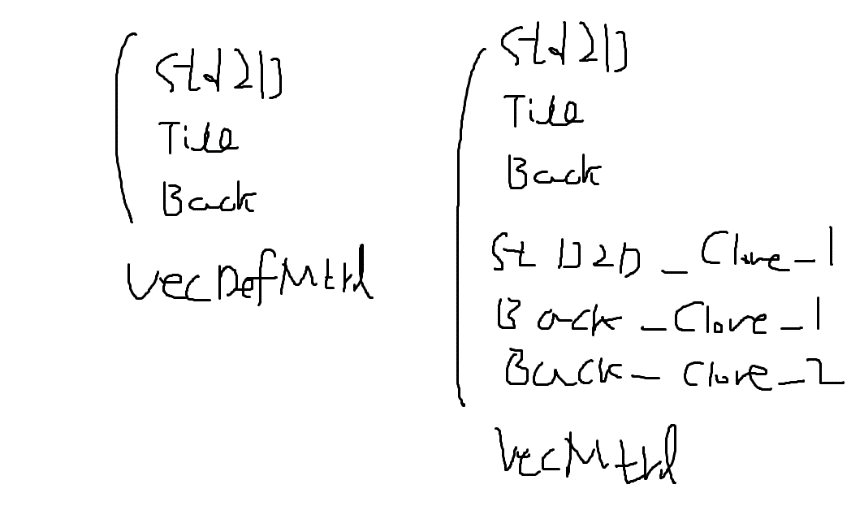 Std2D
Tile
Back
VecDefMtrl
Std2D
Tile
Back
StD2D_Clone_1
Back_Clone_1
Back_Clone_2
VecMtrl